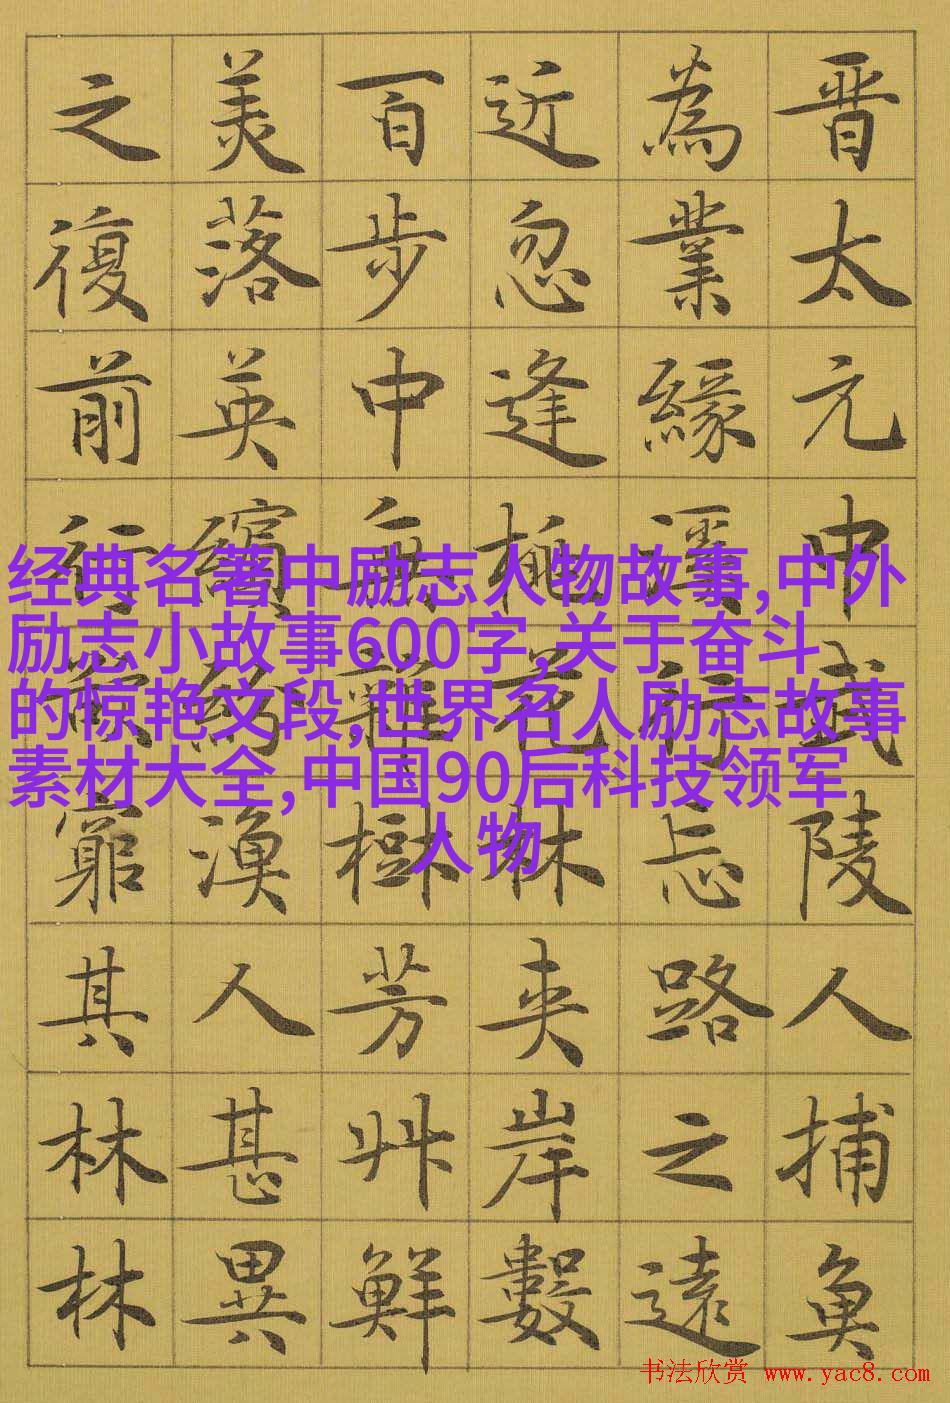 晋太元中武陵人捕魚
為業緣溪行忘路之遠
近忽逢桃花林夾岸數
百步中無雜樹芳艸鮮
美落英繽紛漁人甚異
之復前行欲窮其林林
经典名著中励志人物故事,中外
励志小故事600字,关于奋斗
的惊艳文段,世界名人励志故事
素材大全,中国90后科技领军
人物
书法欣赏 www.yac8.com